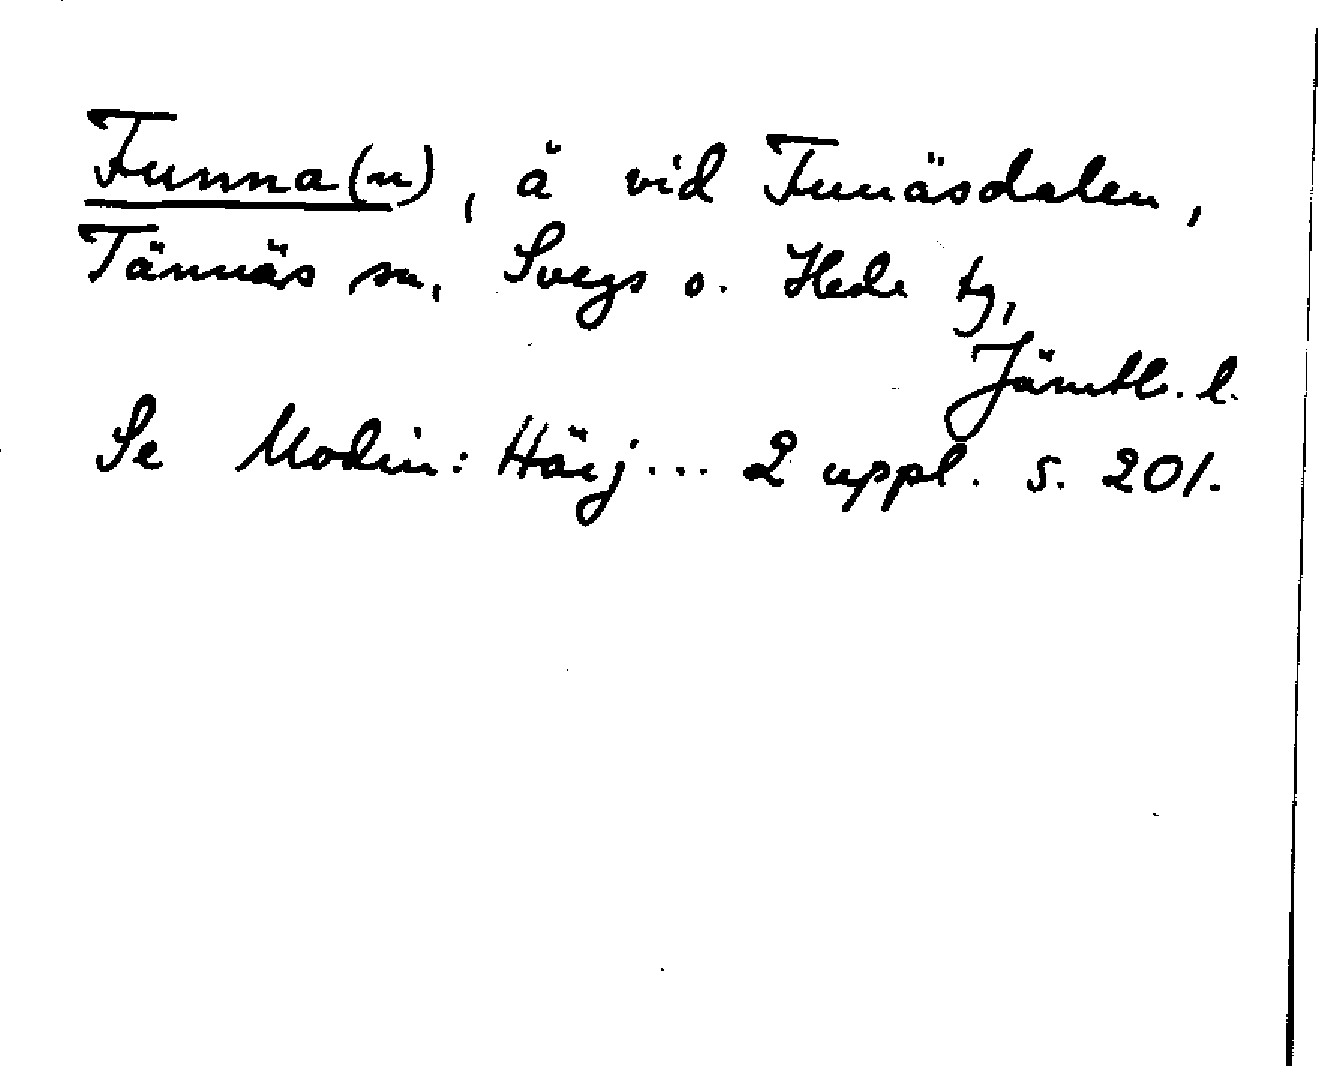 Funna(n), å vid Funäsdalen,
Tännäs sn, Svegs o. Hede tg,
Jämtl. l.
Se Modin: Härj... 2 uppl. s. 201.